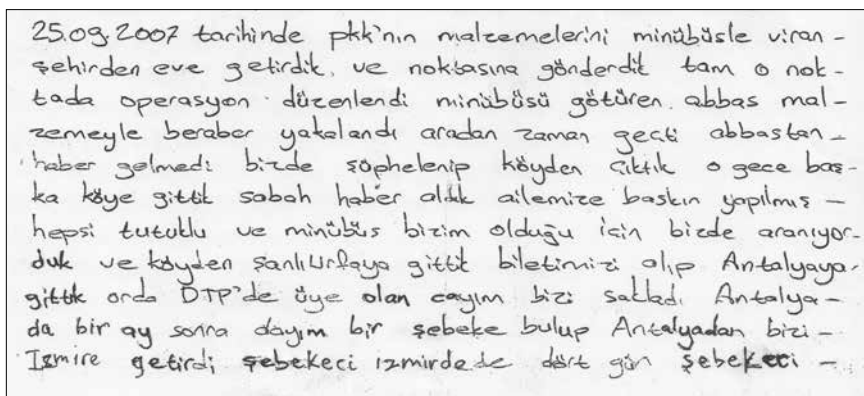 25.09.2007 tarihinde pkk'nın malzemelerini minübüsle viran -
şehirden eve getirdik. ve noktasına gönderdik tam o nok -
tada operasyon düzenlendi minübüsü götüren abbas mal -
zemeyle beraber yakalandı aradan zaman geçti abbastan -
haber gelmedi bizde şüphelenip köyden çıktık o gece baş -
ka köye gittik sabah haber aldık ailemize baskın yapılmış -
hepsi tutuklu ve minübüs bizim olduğu için bizde aranıyor -
duk ve köyden şanlıurfaya gittik biletimizi alıp Antalyaya
gittik orda DTP'de üye olan dayım bizi sakladı Antalya -
da bir ay sonra dayım bir şebeke bulup Antalyadan bizi -
İzmire getirdi şebekeci izmirdede dört gün şebekeci -